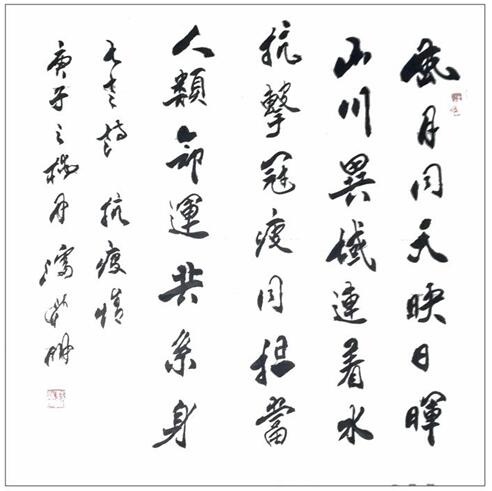 風月同天映日暉
山川異域連着水
抗擊冠疫同担當
人類命運共系身
七言詩 抗疫情
庚子之 月